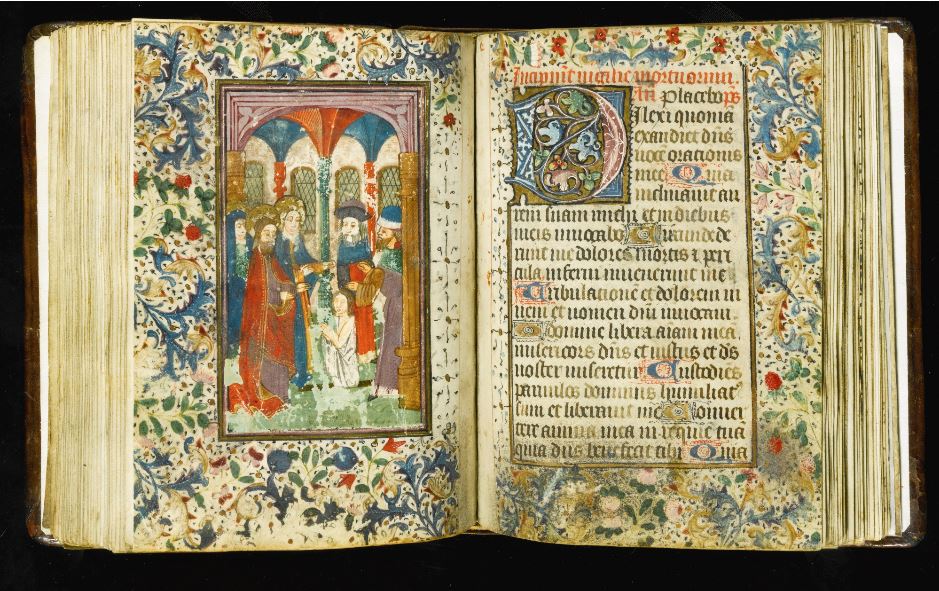 Incipiūt vigilie mortuorum.
An̄ Placebo p̄s
Dilexi quoniā
exaudiet dn̄s
vocē orationis
mee Quia
inclinauit au
rem suam michi et in diebus
meis inuocabo Circūde de
runt me dolores mortis & peri
cula inferni inuenerunt me
Tribulationē et dolorem in
ueni et nomen dn̄i inuocaui
O domine libera aīam meā
misericors dn̄s et iustus et ds̄
noster miseretur Custodiēs
paruulos dominus humiliat᾿
sum et liberauit me Conuer
tere anima mea in requiē tuā
quia dn̄s bene fecit tibi Quia